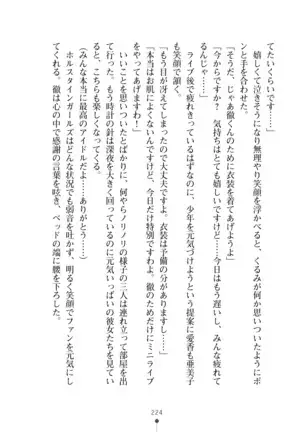 てたいくらいです……」
嬉しくて泣きそうになり無理やり笑顔を浮かべると、くるみが何か思いついたようにポ
ンと手を合わせた。
「そうだ、じゃあ徹くんのために衣装を着てあげようよ」
「今からですか？　気持ちは嬉しいんですけど……今日はもう遅いですし、みんな疲れて
るんじゃ……」
ライブ後で疲れきっているはずなのに、少年を元気づけようという提案に愛香も亜美子
も笑顔で頷く。
「もう目が冴えてしまったので大丈夫ですよ。衣装は予備の分がありますし……」
「本当はお肌によくないんですけど、今日だけ特別ですわ。徹のためだけにミニライブ
をやってあげますわ！」
いいことを思いついたとばかりに、何やらノリノリの様子の三人は連れ立って部屋を出
ていく。もう時計の針は深夜を大きく回っているのに元気いっぱいの彼女たちを見てい
ると、こちらも楽しくなってくる。
（みんな本当に最高のアイドルだよ……ありがとう……）
ホルスタインガールズはどんな状況でも弱音を吐かず、明るく笑顔でファンを元気にし
てくれる。徹は心の中で感謝の言葉を呟き、ベッドの端に腰を下ろした。
224